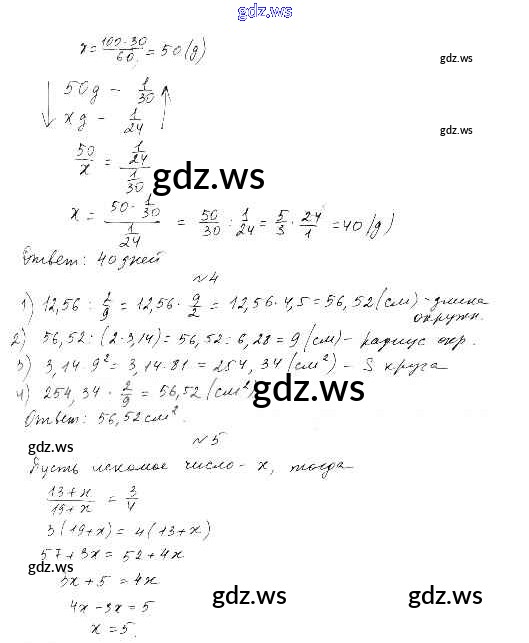 gdz.ws
x = (100·30)/60 = 50 (g)
gdz.ws
↓ 50 g – 1/30 ↑
x g – 1/24
gdz.ws
50/x = (1/24)/(1/30)
gdz.ws
x = (50·1/30)/(1/24) = 50/30 : 1/24 = 5/3 · 24/1 = 40 (g)
Ответ: 40 дней
№4
1) 12,56 : 2/9 = 12,56 · 9/2 = 12,56 · 4,5 = 56,52 (см) - длина
окружн.
2) 56,52 : (2·3,14) = 56,52 : 6,28 = 9 (см) - радиус окр.
3) 3,14·9² = 3,14·81 = 254,34 (см²) - S круга
4) 254,34 · 2/9 = 56,52 (см²)
gdz.ws
Ответ: 56,52 см².
№5
gdz.ws
Пусть искомое число - x, тогда
(13+x)/(19+x) = 3/4
3(19+x) = 4(13+x)
57+3x = 52+4x
gdz.ws
3x+5 = 4x
gdz.ws
gdz.ws
4x-3x = 5
x = 5.
gdz.ws